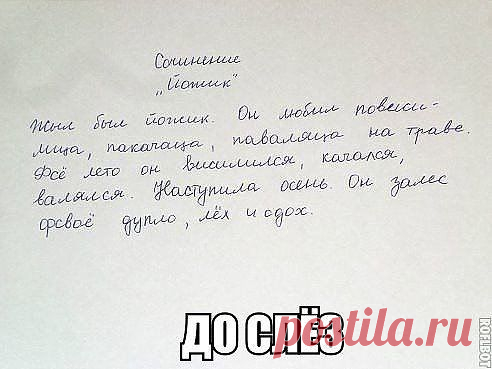 Сочинение
„Йожик“
Жыл был йожик. Он любил повеси-
мица, пакачаца, паваляца на траве.
Фсё лето он висимился, качался,
валялся. Наступила осень. Он залес
фсваё дупло, лёх и одох.
ДО СЛЁЗ
postila.ru
ROFLBOT